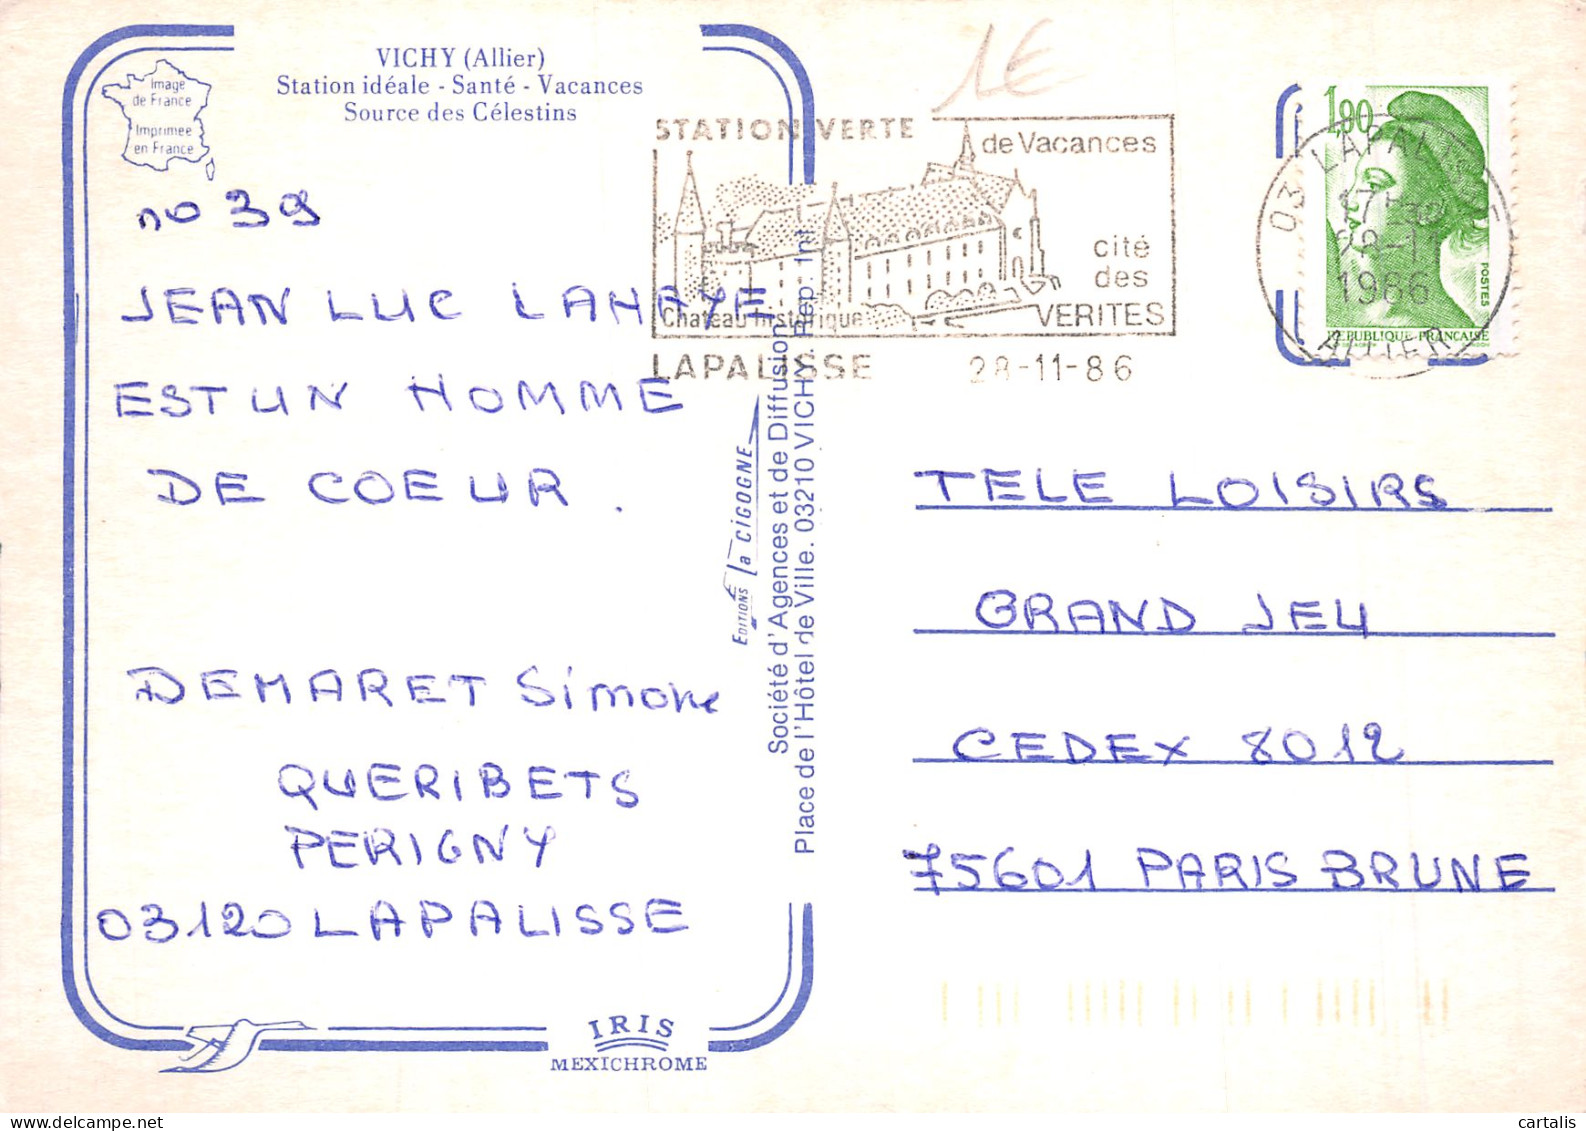 VICHY (Allier)
Station idéale - Santé - Vacances
Source des Célestins
Image
de France
Imprimée
en France
no 39
JEAN LUC LAHAYE
EST UN HOMME
DE COEUR.
DEMARET Simone
QUERIBETS
PERIGNY
03120 LAPALISSE
IRIS
MEXICHROME
EDITIONS la CIGOGNE
Société d'Agences et de Diffusion
Place de l'Hôtel de Ville. 03210 VICHY. Rep. Int.
1€
STATION VERTE
de Vacances
cité
des
VERITES
Château historique
LAPALISSE 28-11-86
1,90
POSTES
REPUBLIQUE FRANÇAISE
03 LAPALISSE
17H
28-11
1986
ALLIER
TELE LOISIRS
GRAND JEU
CEDEX 8012
75601 PARIS BRUNE
cartalis
delcampe.net